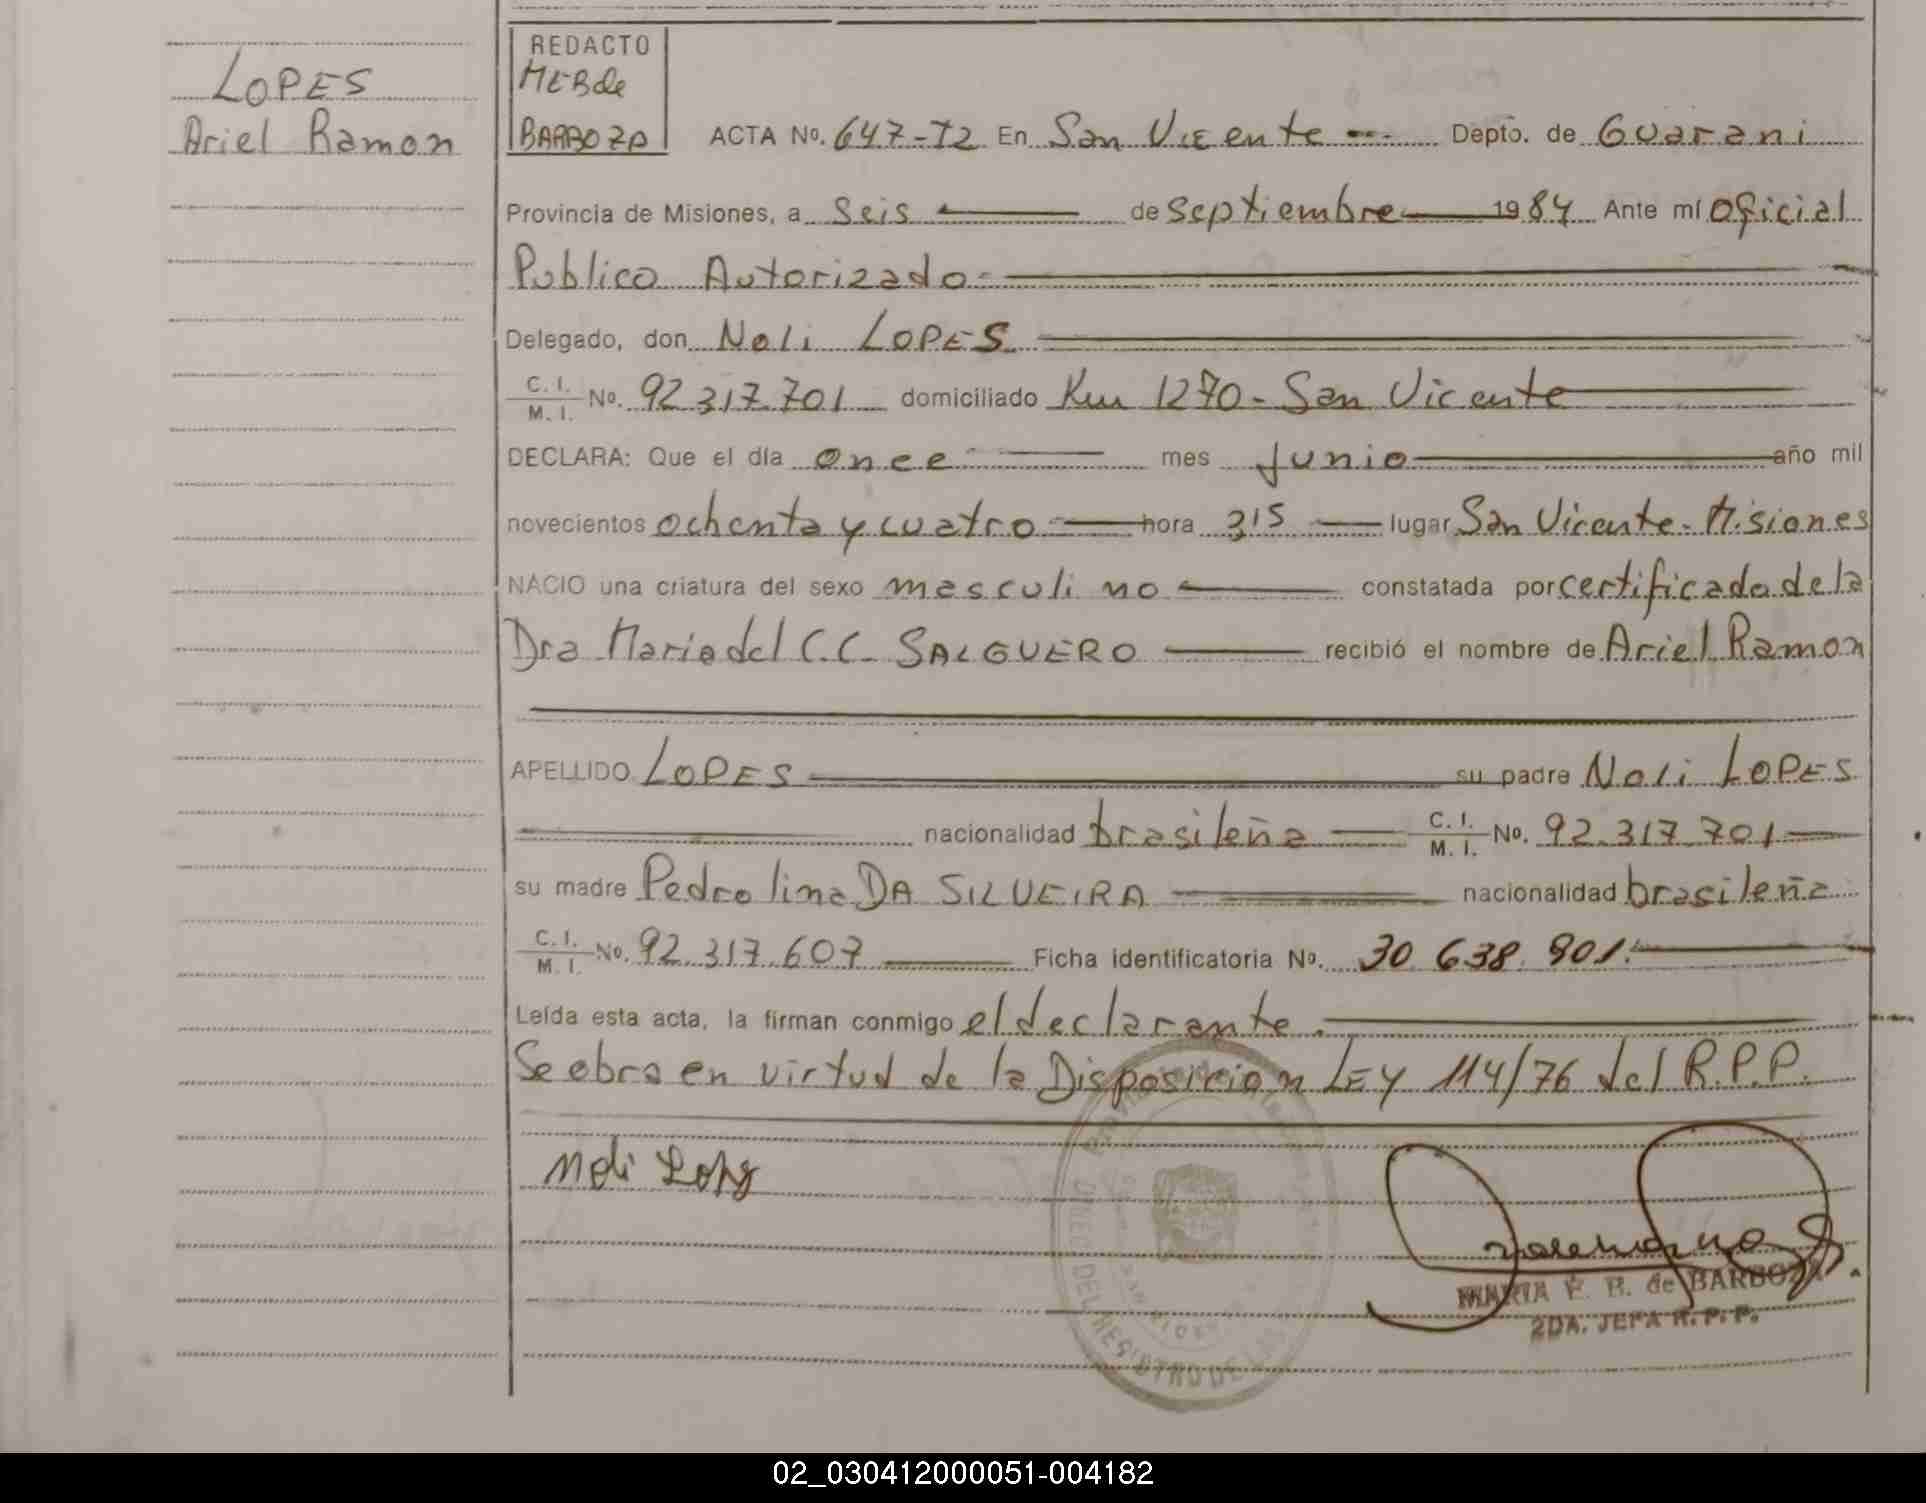 LOPES
Ariel Ramon
REDACTO
MEBde
BARBOZA
ACTA No. 647-T2 En San Vicente Depto. de Guarani
Provincia de Misiones, a Seis de septiembre 1984 Ante mí oficial
Publico Autorizado
Delegado, don Noli LOPES
C. I. / M. I. No. 92.317.701 domiciliado Km 1270 - San Vicente
DECLARA: Que el día once mes junio año mil
novecientos ochenta y cuatro hora 315 lugar San Vicente - Misiones
NACIO una criatura del sexo masculino constatada por certificado de la
Dra Maria del C.C. SALGUERO recibió el nombre de Ariel Ramon
APELLIDO LOPES su padre Noli LOPES
nacionalidad brasileña C. I. / M. I. No. 92.317.701
su madre Pedrolina DA SILVEIRA nacionalidad brasileña
C. I. / M. I. No. 92.317.607 Ficha identificatoria No. 30.638.801.
Leída esta acta, la firman conmigo el declarante.
Se obra en virtud de la Disposicion LEY 114/76 del R.P.P.
Noli Lopes
MARIA E. B. de BARBOZA
2DA. JEFA R. P. P.
02_030412000051-004182